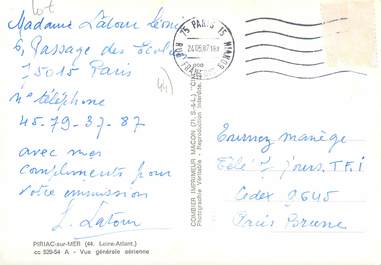 Lot
Madame Latour Léone
6, Passage des
75015 Paris
n° téléphone
45-79-37-87
avec mes
compliments pour
votre émission
L. Latour
(44)
PIRIAC-sur-MER (44. Loire-Atlant.)
cc 529-54 A - Vue générale aérienne
COMBIER IMPRIMEUR MACON (71. S-&-L.)
Photographie Véritable - Reproduction Interdite.
75 PARIS 75
24.05.87
Tournez manège
Télé 7 jours. TF1
Cedex 9645
Paris Brune